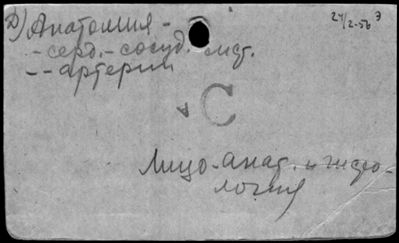 Э
24/2-56
Д) Анатомия -
- серд.-сосуд. сист.
-- артерии
С
Лицо-анат. и гисто-
логия